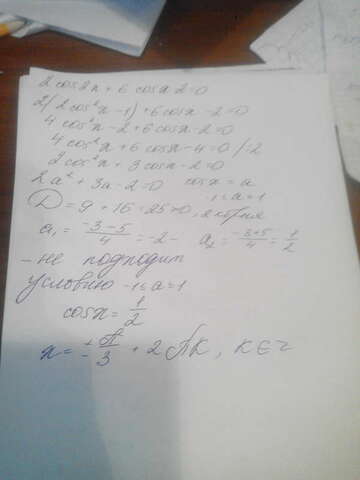 2cos2x + 6 cosx 2=0
2(2cos²x-1)+6cosx-2=0
4cos²x-2+6cosx-2=0
4cos²x+6cosx-4=0/:2
2cos²x+3cosx-2=0
2a²+3a-2=0 cosx=a
-1≤a≤1
D=9+16=25>0, 2 корня
a₁=(-3-5)/4=-2- a₂=(-3+5)/4=1/2
-не подходит
условию -1≤a≤1
cosx=1/2
x=±π/3+2πK, K∈Z